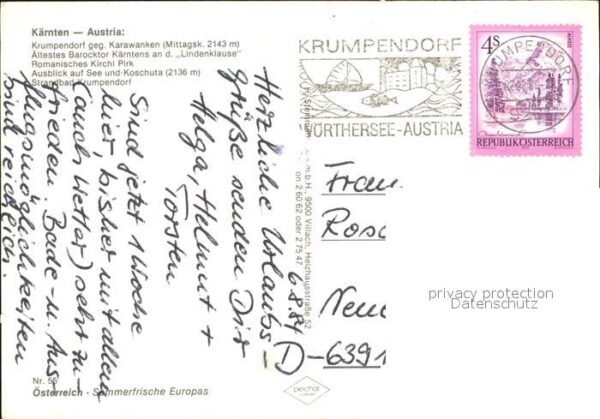 Kärnten — Austria:
Krumpendorf geg. Karawanken (Mittagsk. 2143 m)
Ältestes Barocktor Kärntens an d. „Lindenklause"
Romanisches Kirchl Pirk
Ausblick auf See und Koschuta (2136 m)
Strandbad Krumpendorf
KRUMPENDORF
WÖRTHERSEE-AUSTRIA
4S
KRUMPENDORF
REPUBLIK ÖSTERREICH
6.8.84
Herzliche Urlaubs-
grüße senden Dir
Helga, Helmut +
Torsten
Sind jetzt 1 Woche
hier, bisher mit allem
(auch Wetter) sehr zu-
frieden. Bade- u. Aus-
flugsmöglichkeiten
sind reichlich.
m.b.H., 9500 Villach, Heizhausstraße 52
on 2 60 62 oder 2 75 47
Fra
Ros
D-6391
privacy protection
Datenschutz
Nr. 50
Österreich · Sommerfrische Europas